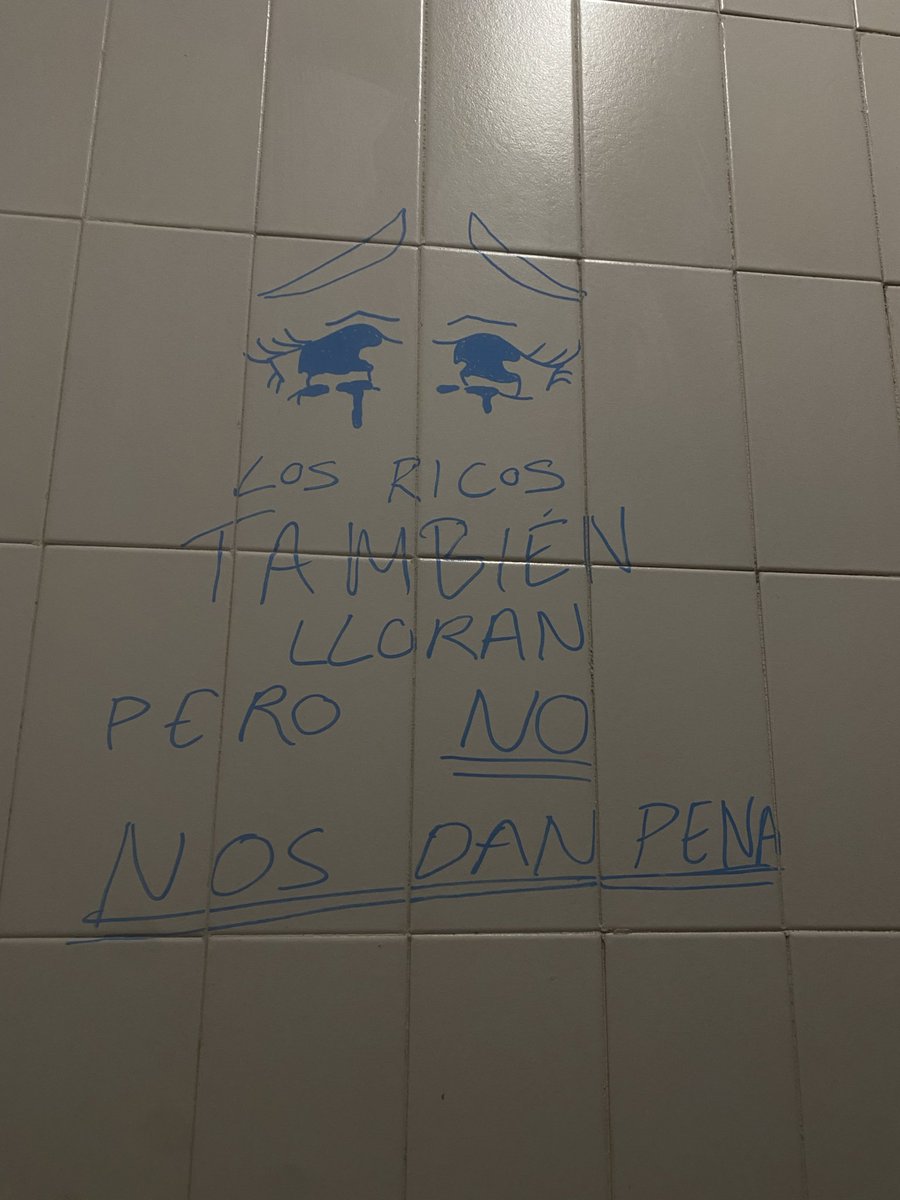 LOS RICOS
TAMBIÉN
LLORAN
PERO NO
NOS DAN PENA